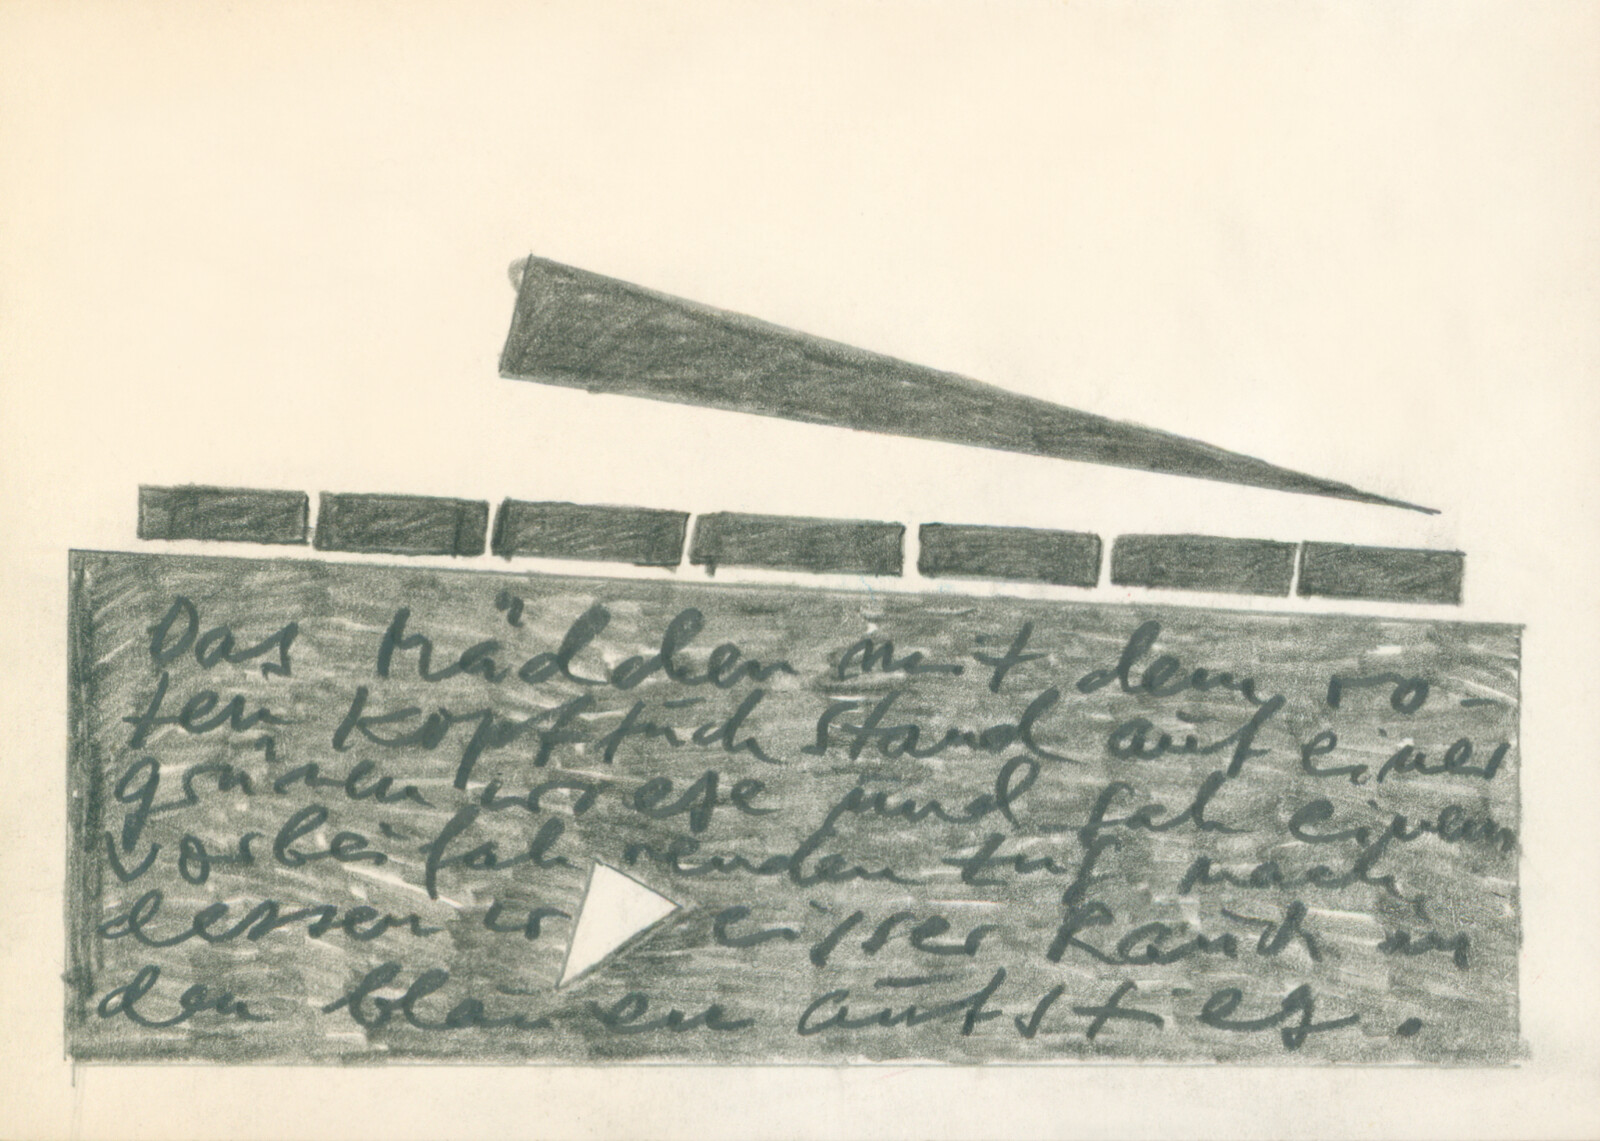 Das Mädchen mit dem ro-
ten Kopftuch stand auf einer
grünen wiese und sah einem
vorbeifahrenden zug nach
dessen weisser Rauch in
den blauen aufstieg.